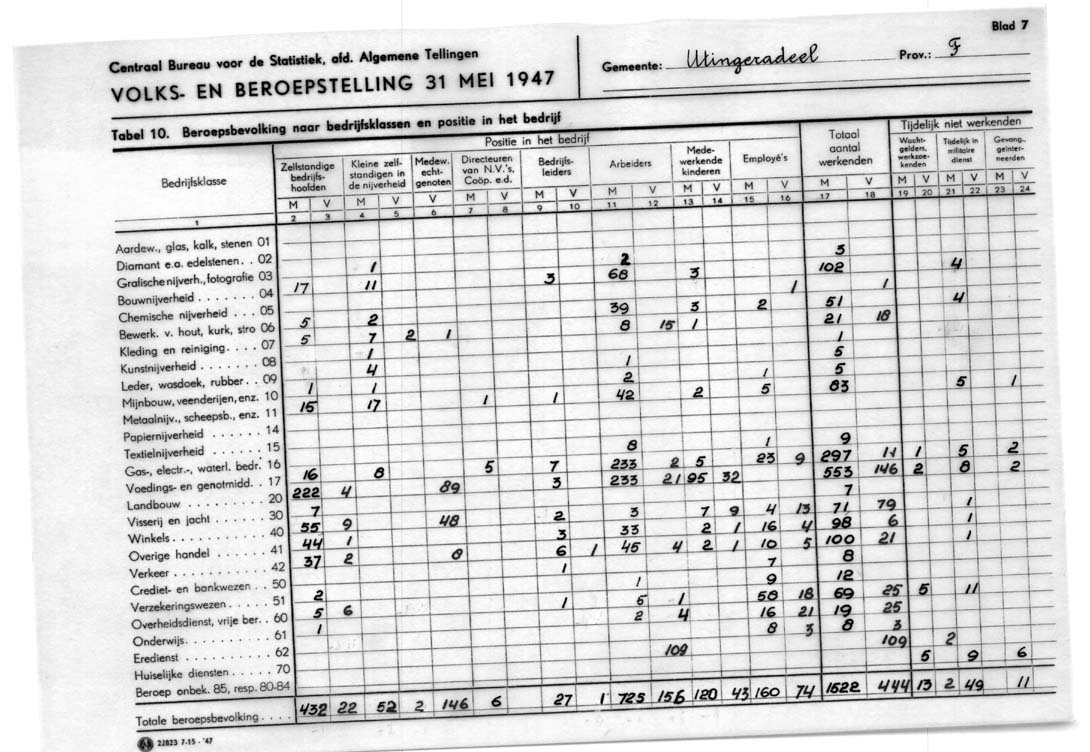 Blad 7
Centraal Bureau voor de Statistiek, afd. Algemene Tellingen
VOLKS- EN BEROEPSTELLING 31 MEI 1947
Gemeente: Utingeradeel Prov.: F
Tabel 10. Beroepsbevolking naar bedrijfsklassen en positie in het bedrijf
Bedrijfsklasse
Positie in het bedrijf
Zelfstandige bedrijfs- hoofden
Kleine zelf- standigen in de nijverheid
Medew. echt- genoten
Directeuren van N.V.'s, Coöp. e.d.
Bedrijfs- leiders
Arbeiders
Mede- werkende kinderen
Employé's
Totaal aantal werkenden
Tijdelijk niet werkenden
Wacht- gelden, werkzoe- kenden
Tijdelijk in militaire dienst
Gevang., geïnter- neerden
M V M V V M V M V M V M V M V M V M V M V M V
1 2 3 4 5 6 7 8 9 10 11 12 13 14 15 16 17 18 19 20 21 22 23 24
Aardew., glas, kalk, stenen 01
Diamant e.a. edelstenen . . 02
Grafische nijverh., fotografie 03 1 2 3
Bouwnijverheid . . . . . . . 04 17 11 3 68 3 102 4
Chemische nijverheid . . . 05 1 1
Bewerk. v. hout, kurk, stro 06 5 2 39 3 2 51 4
Kleding en reiniging . . . . 07 5 7 2 1 8 15 1 21 18
Kunstnijverheid . . . . . . . 08 1 1
Leder, wasdoek, rubber . . 09 4 1 5
Mijnbouw, veenderijen, enz. 10 1 1 2 1 5
Metaalnijv., scheepsb., enz. 11 15 17 1 1 42 2 5 83 5 1
Papiernijverheid . . . . . . 14
Textielnijverheid . . . . . . 15
Gas-, electr.-, waterl. bedr. 16 8 1 9
Voedings- en genotmidd. . 17 16 8 5 7 233 2 5 23 9 297 11 1 5 2
Landbouw . . . . . . . . . 20 222 4 89 3 233 21 95 32 553 146 2 8 2
Visserij en jacht . . . . . . 30 7 7
Winkels . . . . . . . . . . 40 55 9 48 2 3 7 9 4 13 71 79 1
Overige handel . . . . . . 41 44 1 3 33 2 1 16 4 98 6 1
Verkeer . . . . . . . . . . 42 37 2 8 6 1 45 4 2 1 10 5 100 21 1
Crediet- en bankwezen . . 50 1 7 8
Verzekeringswezen . . . . . 51 2 1 9 12
Overheidsdienst, vrije ber. . 60 5 6 1 5 1 58 18 69 25 5 11
Onderwijs . . . . . . . . . 61 1 2 4 16 21 19 25
Eredienst . . . . . . . . . 62 8 3 8 3
Huiselijke diensten . . . . . 70 109 109 2
Beroep onbek. 85, resp. 80-84 5 9 6
Totale beroepsbevolking . . . . 432 22 52 2 146 6 27 1 725 156 120 43 160 74 1522 444 13 2 49 11
22823 7-15 - '47